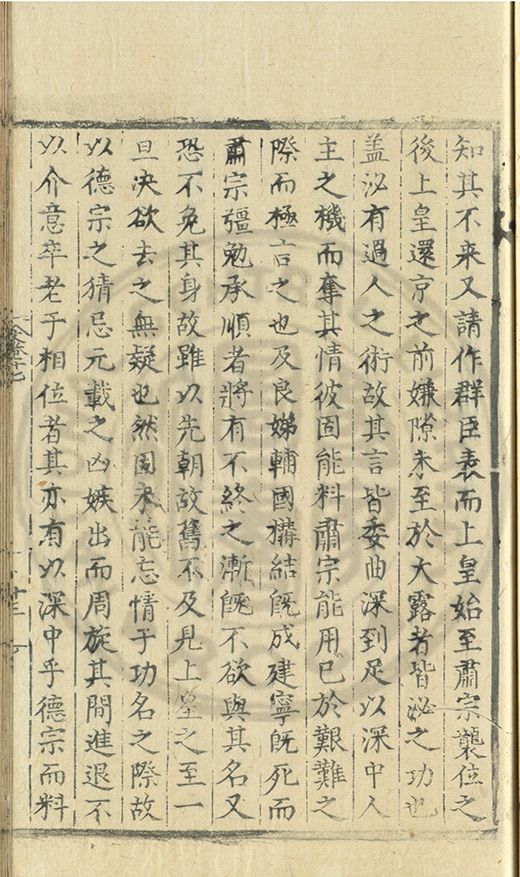 知其不来又請作群臣表而上皇始至肅宗襲位之
後上皇還京之前嫌隙未至於大露者皆泌之功也
盖泌有過人之術故其言皆委曲深到足以深中人
主之機而奪其情彼固能料肅宗能用已於艱難之
際而極言之也及良娣輔國構結旣成建寧旣死而
肅宗彊勉承順者將有不終之漸旣不欲與其名又
恐不免其身故雖以先朝故舊不及見上皇之至一
旦决欲去之無疑也然固未能忘情于功名之際故
以德宗之猜忌元載之凶嫉出而周旋其間進退不
以介意卒老于相位者其亦有以深中乎德宗而料